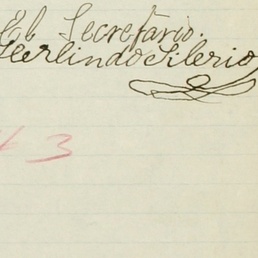 El Secretario.
Herlindo Silerio
3